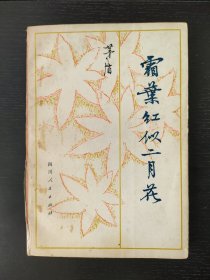 霜葉红似二月花
茅盾
四川人民出版社